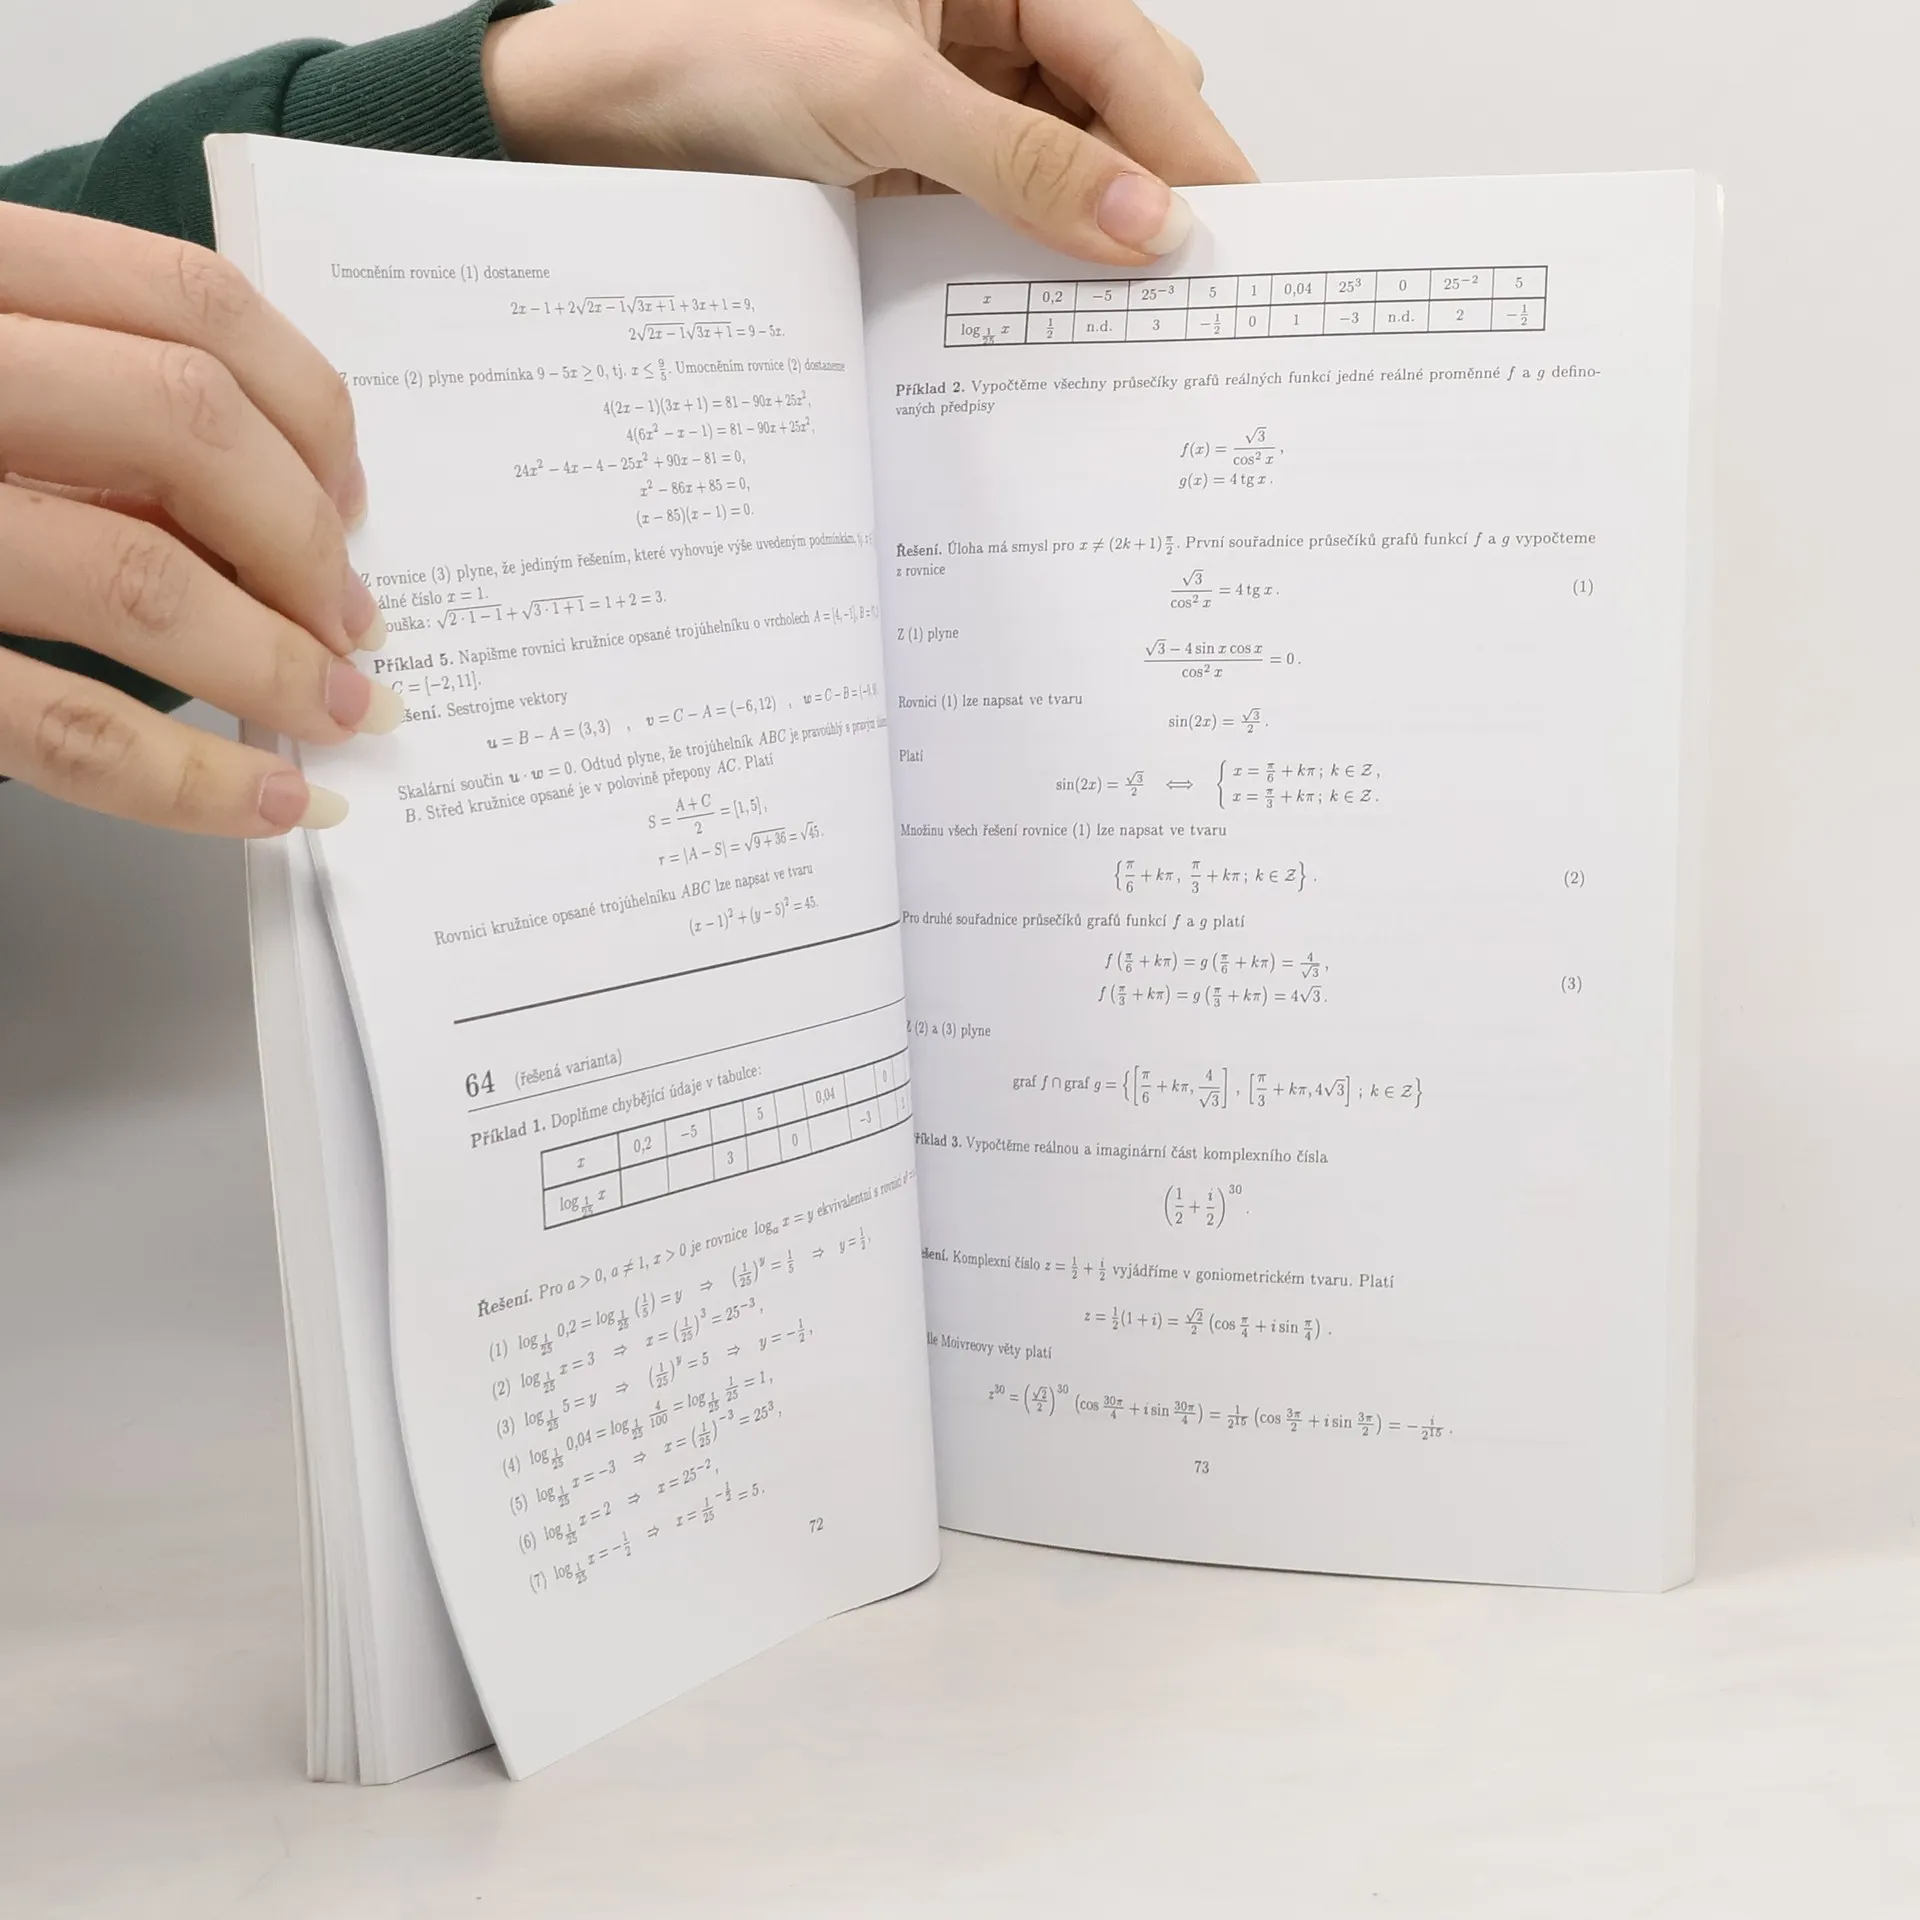 Umocněním rovnice (1) dostaneme
2x − 1 + 2√(2x − 1)√(3x + 1) + 3x + 1 = 9,
2√(2x − 1)√(3x + 1) = 9 − 5x.
Z rovnice (2) plyne podmínka 9 − 5x ≥ 0, tj. x ≤ 9/5. Umocněním rovnice (2) dostaneme
4(2x − 1)(3x + 1) = 81 − 90x + 25x²,
4(6x² − x − 1) = 81 − 90x + 25x²,
24x² − 4x − 4 − 25x² + 90x − 81 = 0,
x² − 86x + 85 = 0,
(x − 85)(x − 1) = 0.
Z rovnice (3) plyne, že jediným řešením, které vyhovuje výše uvedeným podmínkám, tj.
álné číslo x = 1.
ouška: √(2 · 1 − 1) + √(3 · 1 + 1) = 1 + 2 = 3.
Příklad 5. Napišme rovnici kružnice opsané trojúhelníku o vrcholech A = [4, −1], B =
C = [−2, 11].
šení. Sestrojme vektory
u = B − A = (3, 3) , v = C − A = (−6, 12) , w = C − B =
Skalární součin u · w = 0. Odtud plyne, že trojúhelník ABC je pravoúhlý s pravým
B. Střed kružnice opsané je v polovině přepony AC. Platí
S = (A + C)/2 = [1, 5],
r = |A − S| = √(9 + 36) = √45.
Rovnici kružnice opsané trojúhelníku ABC lze napsat ve tvaru
(x − 1)² + (y − 5)² = 45.
64 (řešená varianta)
Příklad 1. Doplňme chybějící údaje v tabulce:
x 0,2 −5 5 0,04 0
log_{1/25} x 3 0 −3 2
Řešení. Pro a > 0, a ≠ 1, x > 0 je rovnice log_a x = y ekvivalentní s rovnicí
(1) log_{1/25} 0,2 = log_{1/25} (1/5) = y ⇒ (1/25)^y = 1/5 ⇒ y = 1/2,
(2) log_{1/25} x = 3 ⇒ x = (1/25)³ = 25⁻³,
(3) log_{1/25} 5 = y ⇒ (1/25)^y = 5 ⇒ y = −1/2,
(4) log_{1/25} 0,04 = log_{1/25} 4/100 = log_{1/25} 1/25 = 1,
(5) log_{1/25} x = −3 ⇒ x = (1/25)⁻³ = 25³,
(6) log_{1/25} x = 2 ⇒ x = 25⁻²,
(7) log_{1/25} x = −1/2 ⇒ x = 1/25^{−1/2} = 5.
72
x 0,2 −5 25⁻³ 5 1 0,04 25³ 0 25⁻² 5
log_{1/25} x 1/2 n.d. 3 −1/2 0 1 −3 n.d. 2 −1/2
Příklad 2. Vypočtěme všechny průsečíky grafů reálných funkcí jedné reálné proměnné f a g defino-
vaných předpisy
f(x) = √3/cos² x ,
g(x) = 4 tg x .
Řešení. Úloha má smysl pro x ≠ (2k + 1)π/2. První souřadnice průsečíků grafů funkcí f a g vypočteme
z rovnice
√3/cos² x = 4 tg x . (1)
Z (1) plyne
(√3 − 4 sin x cos x)/cos² x = 0 .
Rovnici (1) lze napsat ve tvaru
sin(2x) = √3/2 .
Platí
sin(2x) = √3/2 ⟺ { x = π/6 + kπ ; k ∈ Z ,
x = π/3 + kπ ; k ∈ Z .
Množinu všech řešení rovnice (1) lze napsat ve tvaru
{π/6 + kπ , π/3 + kπ ; k ∈ Z} . (2)
Pro druhé souřadnice průsečíků grafů funkcí f a g platí
f (π/6 + kπ) = g (π/6 + kπ) = 4/√3 ,
f (π/3 + kπ) = g (π/3 + kπ) = 4√3 . (3)
Z (2) a (3) plyne
graf f ∩ graf g = {[π/6 + kπ, 4/√3] , [π/3 + kπ, 4√3] ; k ∈ Z}
říklad 3. Vypočtěme reálnou a imaginární část komplexního čísla
(1/2 + i/2)³⁰ .
ešení. Komplexní číslo z = 1/2 + i/2 vyjádříme v goniometrickém tvaru. Platí
z = 1/2(1 + i) = √2/2 (cos π/4 + i sin π/4) .
dle Moivreovy věty platí
z³⁰ = (√2/2)³⁰ (cos 30π/4 + i sin 30π/4) = 1/2¹⁵ (cos 3π/2 + i sin 3π/2) = −i/2¹⁵ .
73